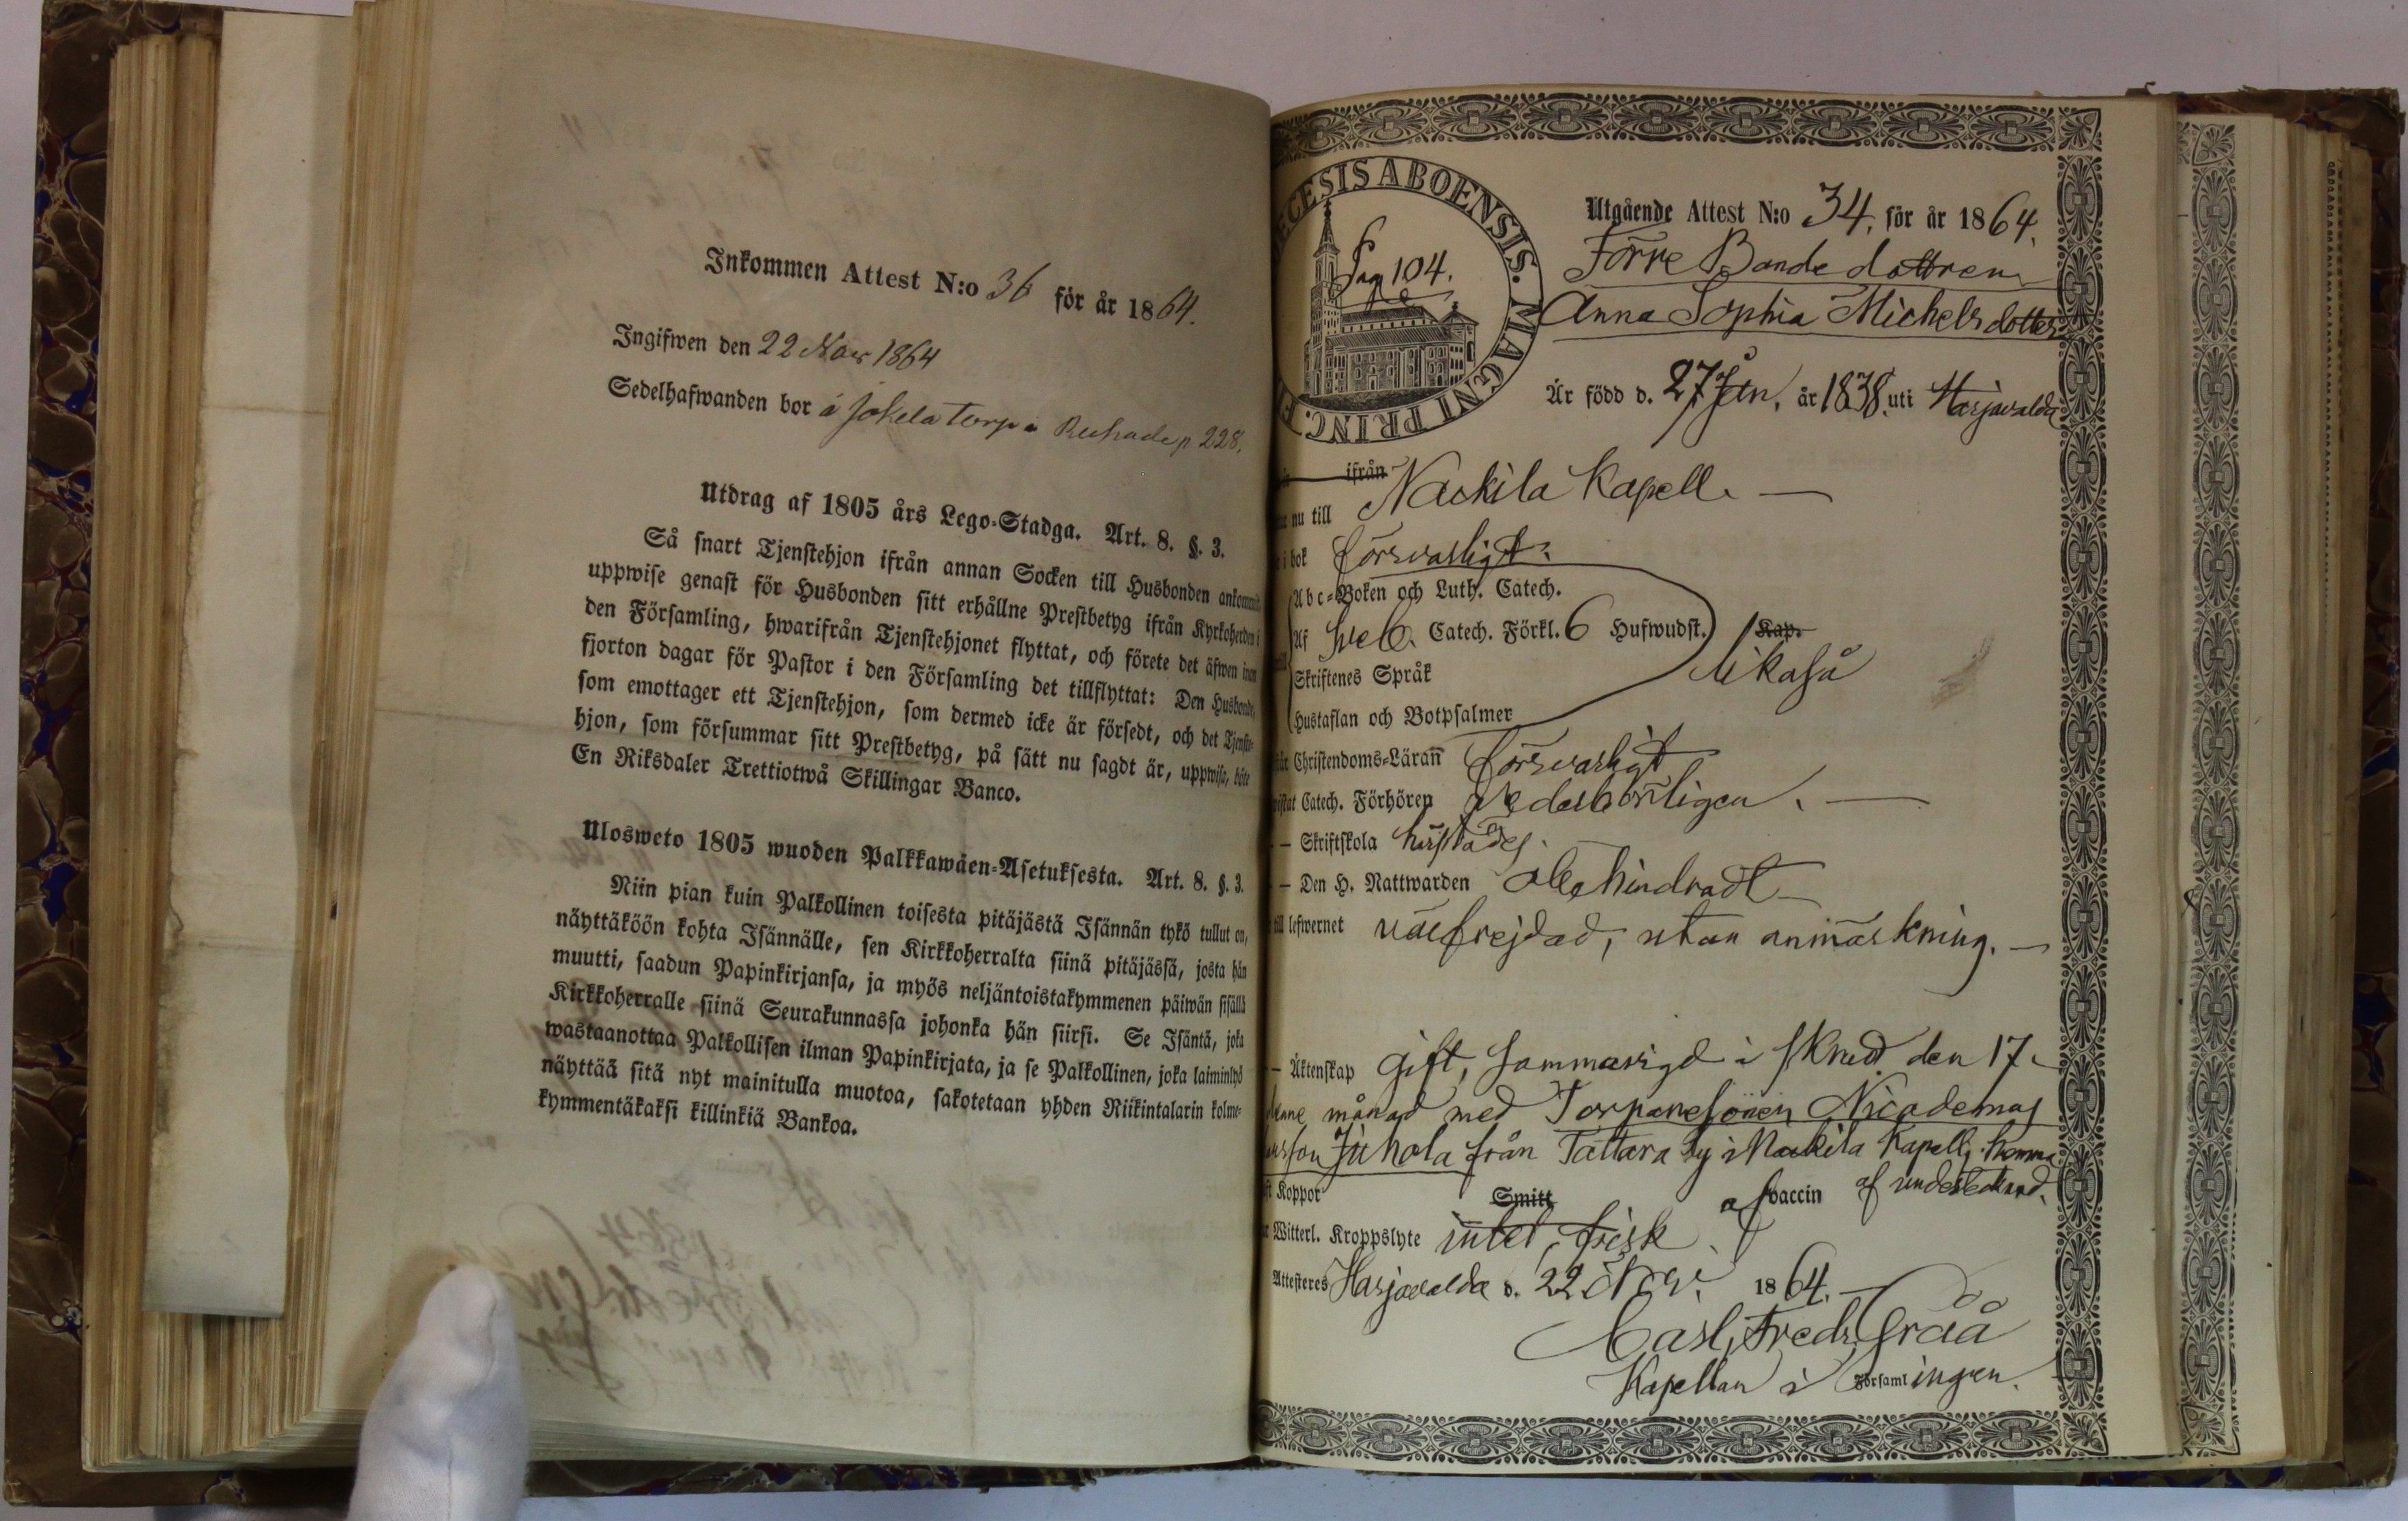 Inkommen Attest N:o 36 för år 1864.
Ingifwen den 22 Nov 1864
Sedelhafwanden bor å Jokela torp p 228.
Utdrag af 1805 års Lego-Stadga. Art. 8. §. 3.
Så snart Tjenstehjon ifrån annan Socken till Husbonden
uppwise genast för Husbonden sitt erhållne Prestbetyg ifrån Kyrkoherden i
den Församling, hwarifrån Tjenstehjonet flyttat, och förete det äfwen inom
fjorton dagar för Pastor i den Församling det tillflyttat: Den Husbonde,
som emottager ett Tjenstehjon, som dermed icke är försedt, och det Tjenste-
hjon, som försummar sitt Prestbetyg, på sätt nu sagdt är, uppwisa, böte
En Riksdaler Trettiotwå Skillingar Banco.
Ulosweto 1805 wuoden Palkkawäen-Asetuksesta. Art. 8. §. 3.
Niin pian kuin Palkollinen toisesta pitäjästä Isännän tykö tullut on,
näyttäköön kohta Isännälle, sen Kirkkoherralta siinä pitäjässä, josta hän
muutti, saadun Papinkirjansa, ja myös neljäntoistakymmenen päiwän sisällä
Kirkkoherralle siinä Seurakunnassa johonka hän siirsi. Se Isäntä, joka
wastaanottaa Palkollisen ilman Papinkirjata, ja se Palkollinen, joka laiminlyö
näyttää sitä nyt mainitulla muotoa, sakotetaan yhden Riikintalarin kolme-
kymmentäkaksi killinkiä Bankoa.
ECESIS ABOENSIS. MAGNI PRINC. F
Pag 104.
Utgående Attest N:o 34. för år 1864.
Förre Bondedottren
Anna Sophia Michelsdotter
Är född d. 27 Jan. år 1838. uti Harjavalda
ifrån
nu till Nackila Kapell. —
i bok försvarligt.
Abc-Boken och Luth. Catech.
Af Sveb. Catech. Förkl. 6 Hufwudst. Kap.
Skriftenes Språk likaså
Hustaflan och Botpsalmer
Christendoms-Läran försvarligt
Catech. Förhören vederbörligen. —
— Skriftskola härstädes.
— Den H. Nattwarden obehindradt
till lefwernet välfrejdad, utan anmärkning. —
— Äktenskap gift, sammanvigd i Skned den 17.
månad med Torparesonen Nicodemus
Juhola från Tattara by i Nackila Kapell, hemma
Koppor Smitt af vaccin af underlefnad.
Witterl. Kroppslyte intet, frisk.
Attesteras Harjavalda d. 22 Nov. 1864. —
Carl Fredr. Gråå
Kapellan i Församlingen.